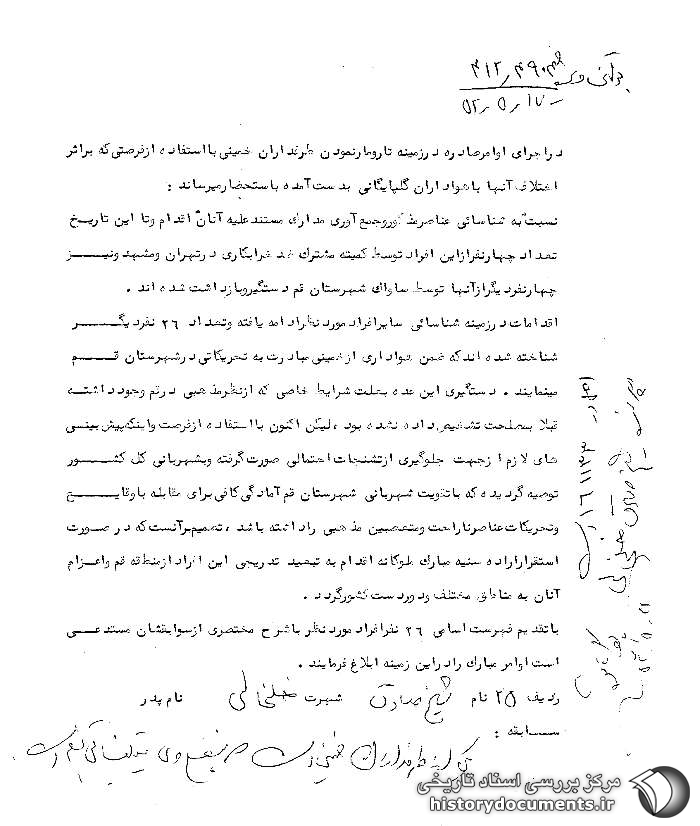 ۳۱۲/۴۹۰
۵۲/۵/۱۷
در اجرای اوامر صادره در زمینه تارومار نمودن طرفداران خمینی با استفاده از فرصتی که بر اثر
اختلاف آنها با هواداران گلپایگانی بدست آمده باستحضار میرساند :
نسبت به شناسائی عناصر مذکور و جمع آوری مدارک مستند علیه آنان اقدام و تا این تاریخ
تعداد چهار نفر از این افراد توسط کمیته مشترک ضد خرابکاری در تهران و مشهد و نیز
چهار نفر دیگر از آنها توسط ساواک شهرستان قم دستگیر و بازداشت شده اند .
اقدامات در زمینه شناسائی سایر افراد مورد نظر ادامه یافته و تعداد ۲۶ نفر دیگر
شناخته شده اند که ضمن هواداری از خمینی مبادرت به تحریکاتی در شهرستان قم
مینمایند . دستگیری این عده بعلت شرایط خاصی که از نظر مذهبی در قم وجود داشته
قبلا بمصلحت تشخیص داده نشده بود ، لیکن اکنون با استفاده از فرصت و اینکه پیش بینی
های لازم از جهت جلوگیری از تشنجات احتمالی صورت گرفته و بشهربانی کل کشور
توصیه گردیده که با تقویت شهربانی شهرستان قم آمادگی کافی برای مقابله با وقایع
و تحریکات عناصر ناراحت و متعصبین مذهبی را داشته باشد ، تصمیم بر آنست که در صورت
استقرار اراده سنیه مبارک ملوکانه اقدام به تبعید تدریجی این افراد از منطقه قم و اعزام
آنان به مناطق مختلف و دوردست کشور گردد .
با تقدیم فهرست اسامی ۲۶ نفر افراد مورد نظر با شرح مختصری از سوابقشان مستدعی
است اوامر مبارک را در این زمینه ابلاغ فرمایند .
ردیف ۲۵ نام شیخ صادق شهرت خلخالی نام پدر
سابقه :
یکی از طرفداران خمینی است
شیخ صادق خلخالی
۱۶۱۱۳۳
مرکز بررسی اسناد تاریخی
historydocuments.ir